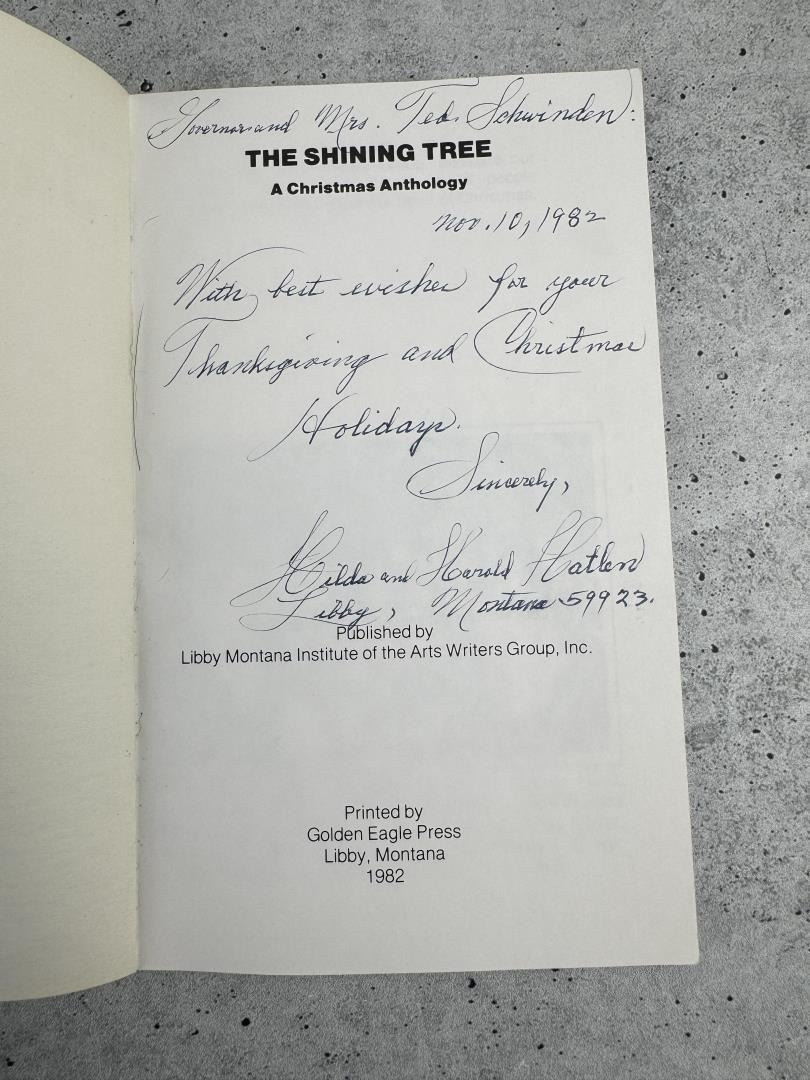 Governor and Mrs. Ted Schwinden:
THE SHINING TREE
A Christmas Anthology
Nov. 10, 1982
With best wishes for your
Thanksgiving and Christmas
Holidays.
Sincerely,
Hilda and Harold Hatlen
Libby, Montana 59923.
Published by
Libby Montana Institute of the Arts Writers Group, Inc.
Printed by
Golden Eagle Press
Libby, Montana
1982